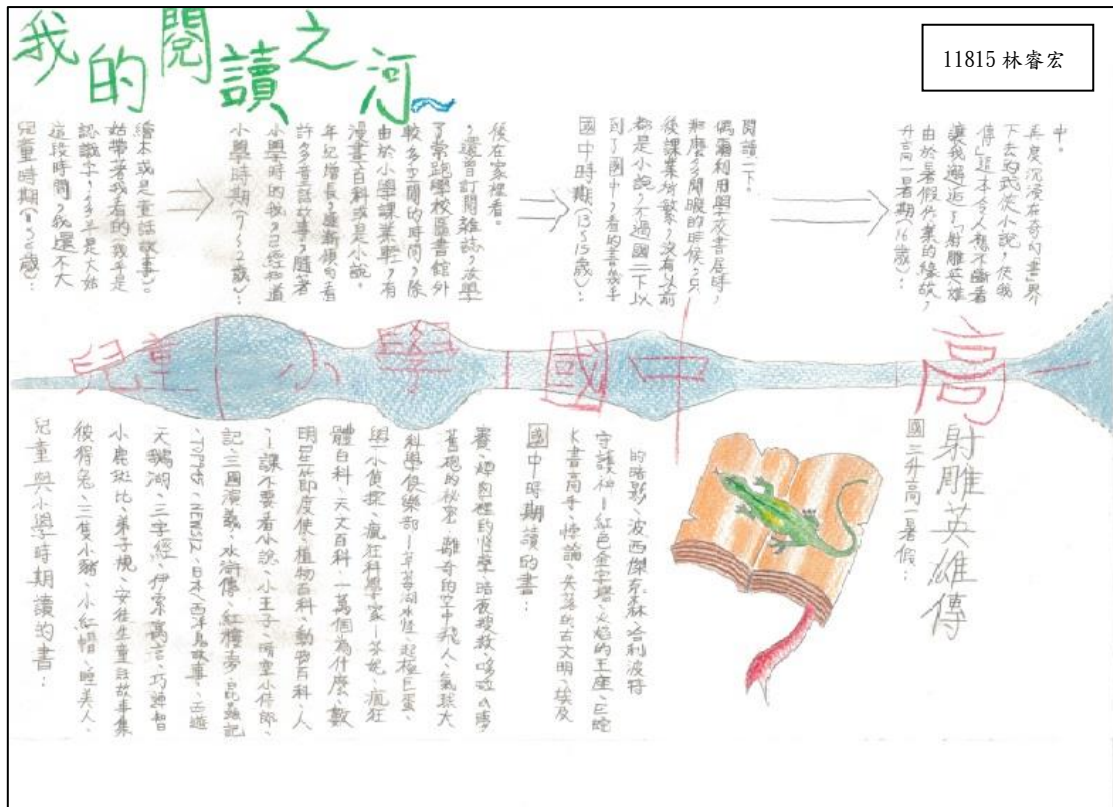 我的閱讀之河~
11815 林睿宏
兒童時期(0~6歲):
這段時間,我還不大
認識字,多半是大姑
姑帶著我看的(幾乎是
繪本或是童話故事)。
小學時期(7~12歲):
小學時的我,已經知道
許多童話故事,隨著
年紀增長,漸漸傾向看
漫畫百科或是小說。
由於小學課業輕,有
較多空閒的時間,除
了常跑學校圖書館外
,還曾訂閱雜誌,放學
後在家裡看。
國中時期(13~15歲):
到了國中,看的書幾乎
都是小說,不過國二下以
後課業繁,沒有以前
那麼多閒暇的時候,只
偶爾利用學校書展時,
閱讀一下。
升高一暑期(16歲):
由於暑假作業的緣故,
讓我邂逅了「射雕英雄
傳」這本令人想不斷看
下去的武俠小說,使我
再度沉浸在奇幻「書」界
中。
兒童 小學 國中 高一
兒童與小學時期讀的書:
彼得兔、三隻小豬、小紅帽、睡美人、
小鹿斑比、弟子規、安徒生童話故事集
天鵝湖、三字經、伊索寓言、巧連智
、TOP945、NEWS12、日本、西洋鬼故事、西遊
記、三國演義、水滸傳、紅樓夢、昆蟲記
、課不要看小說、小王子、晴空小侍郎、
明星節度使、植物百科、動物百科、人
體百科、天文百科、一萬個為什麼、數
學小偵探、瘋狂科學家—芬妮、瘋狂
科學俱樂部—草莓湖水怪、超極巨蛋、
舊砲的秘密、離奇的空中飛人、氣球大
賽、煙囪裡的怪學、暗夜搜救
國中時期讀的書:
大書高手、悖論、失落的古文明、埃及
守護神—紅色金字塔、火焰的王座、巨蛇
的暗影、波西傑克森、哈利波特
國三升高一暑假:
射雕英雄傳